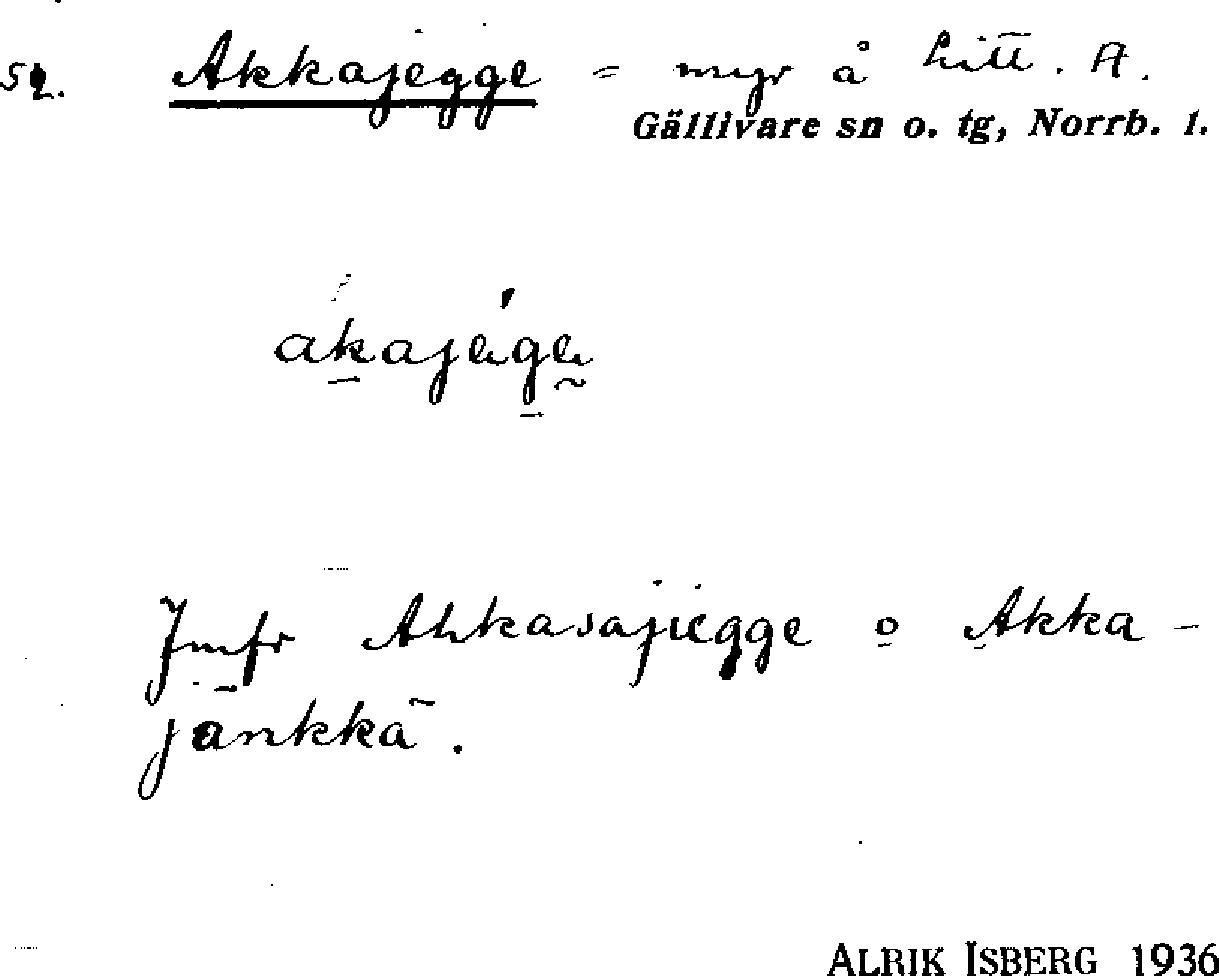 59. Akkajegge = myr å litt. A.
Gällivare sn o. tg, Norrb. l.
Jmfr Ahkasajiegge o Akka-
jänkkä.
ALRIK ISBERG 1936